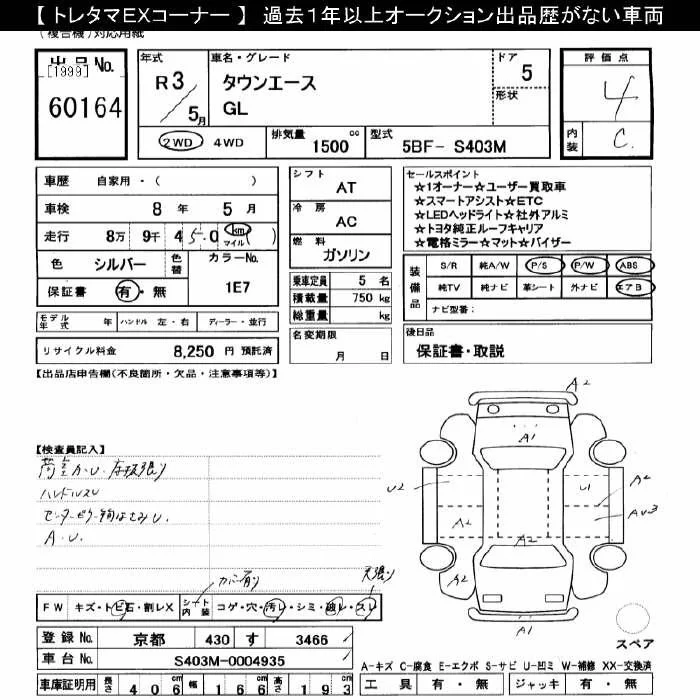 【 トレタマEXコーナー 】 過去１年以上オークション出品歴がない車両
(複合機)対応用紙
出品No.
[1999]
60164
年式
R3/5月
車名・グレード
タウンエース
GL
ドア
5
形状
評価点
4
内装
C
2WD 4WD
排気量 1500 cc
型式 5BF- S403M
車歴 自家用・( )
車検 8 年 5 月
走行 8万 9千 450 km マイル ( )
色 シルバー 色替 カラーNo.
保証書 有・無 1E7
モデル年式 年 ハンドル 左・右 ディーラー・並行
リサイクル料金 8,250 円 預託済
シフト AT
冷房 AC
燃料 ガソリン
乗車定員 5 名
積載量 750 kg
総重量 kg
名変期限
月 日
セールスポイント
☆1オーナー☆ユーザー買取車
☆スマートアシスト☆ETC
☆LEDヘッドライト☆社外アルミ
☆トヨタ純正ルーフキャリア
☆電格ミラー☆マット☆バイザー
装備品
S/R 純A/W P/S P/W ABS
純TV 純ナビ 革シート 外ナビ エアB
ナビ型番:
後日品
保証書・取説
【出品店申告欄(不良箇所・欠品・注意事項等)】
【検査員記入】
荷室カハU・床板張り
ハンドルスレ
A・U.
カバー有り
天張り
FW キズ・トビ石・割レX シート内装 コゲ・穴・汚レ・シミ・破レ・スレ
登録No. 京都 430 す 3466
車台No. S403M-0004935
車庫証明用 長さ 406 幅 166 高さ 193
A2
A1
U2
U1
A2
A2
A2
A2
A2
A1
スペア
A-キズ C-腐食 E-エクボ S-サビ U-凹ミ W-補修 XX-交換済
工具 有・無 ジャッキ 有・無